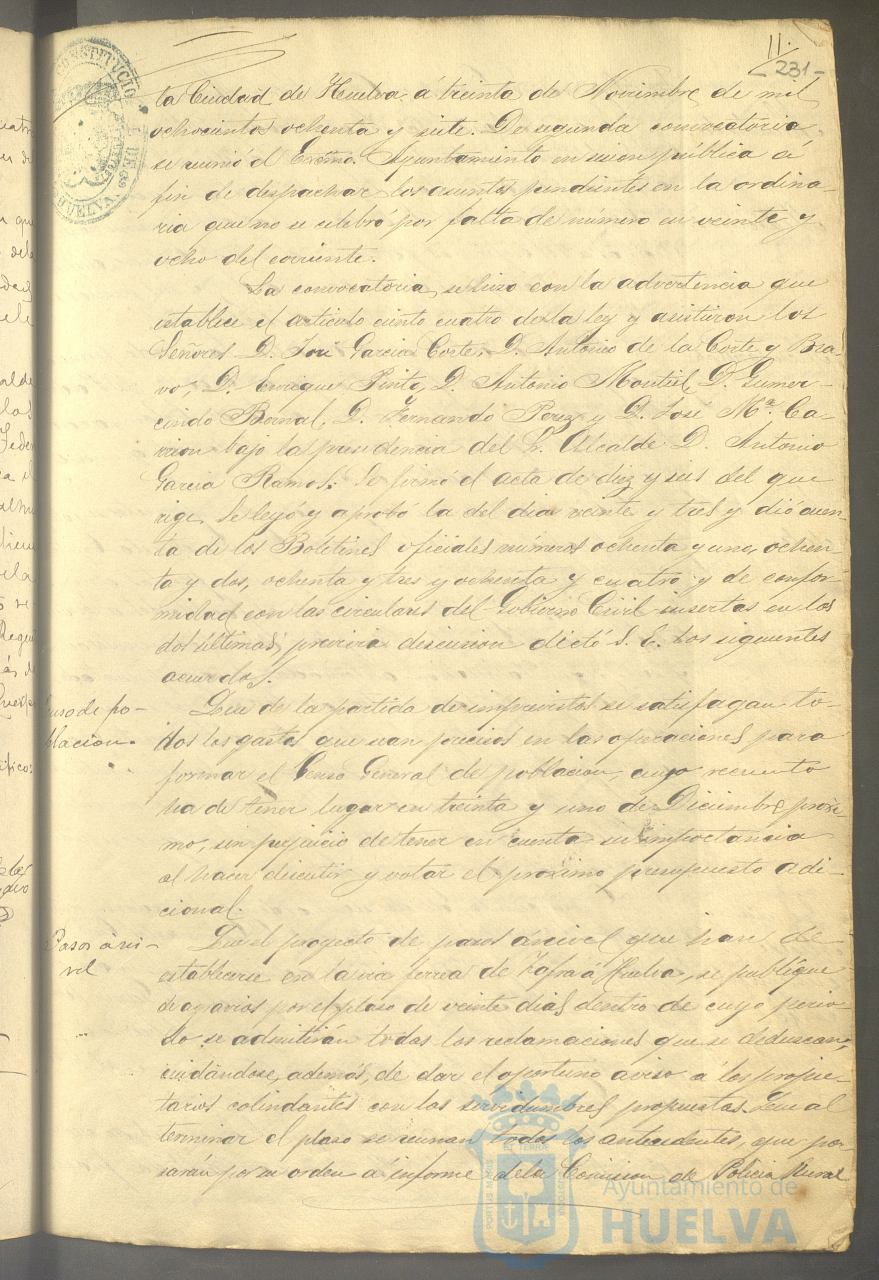 11.
231
ta Ciudad de Huelva á treinta de Noviembre de mil
ochocientos ochenta y siete. De segunda convocatoria
se reunió el Excmo. Ayuntamiento en sesion pública á
fin de despachar los asuntos pendientes en la ordina-
ria que no se celebró por falta de número en veinte y
ocho del corriente.
La convocatoria se hizo con la advertencia que
establece el artículo ciento cuatro de la ley y asistieron los
Señores D. José Garcia Corte, D. Antonio de la Corte y Bra-
vo, D. Enrique Pinto, D. Antonio Montiel, D. Gumer-
cindo Bernal, D. Fernando Perez y D. José Mª. Ca-
rrion bajo la presidencia del Sr. Alcalde D. Antonio
Garcia Ramos. Se firmó el acta de diez y seis del que
rige, se leyó y aprobó la del dia veinte y tres y dió cuen-
ta de los Boletines oficiales números ochenta y uno, ochen-
ta y dos, ochenta y tres y ochenta y cuatro y de confor-
midad con las circulares del Gobierno Civil insertas en los
dos últimos, previa discusion dictó S. E. los siguientes
acuerdos.
Censo de po-
blacion.
Que de la partida de imprevistos se satisfagan to-
dos los gastos que sean precisos en las operaciones para
formar el Censo General de poblacion, cuyo recuento
ha de tener lugar en treinta y uno de Diciembre próxi-
mo, sin perjuicio de tener en cuenta su importancia
al hacer discutir y votar el próximo presupuesto adi-
cional.
Pasos á ni-
vel
Que el proyecto de pasos á nivel que han de
establecerse en la via ferrea de Zafra á Huelva, se publique
de agravios por el plaso de veinte dias dentro de cuyo perio-
do se admitirán todas las reclamaciones que se deduscan,
cuidándose, además, de dar el oportuno aviso á los propie-
tarios colindantes con las servidumbres propuestas. Que al
terminar el plaso se reunan todos los antecedentes, que pa-
sarán por su orden á informe de la Comision de Policia Rural
Ayuntamiento de
HUELVA